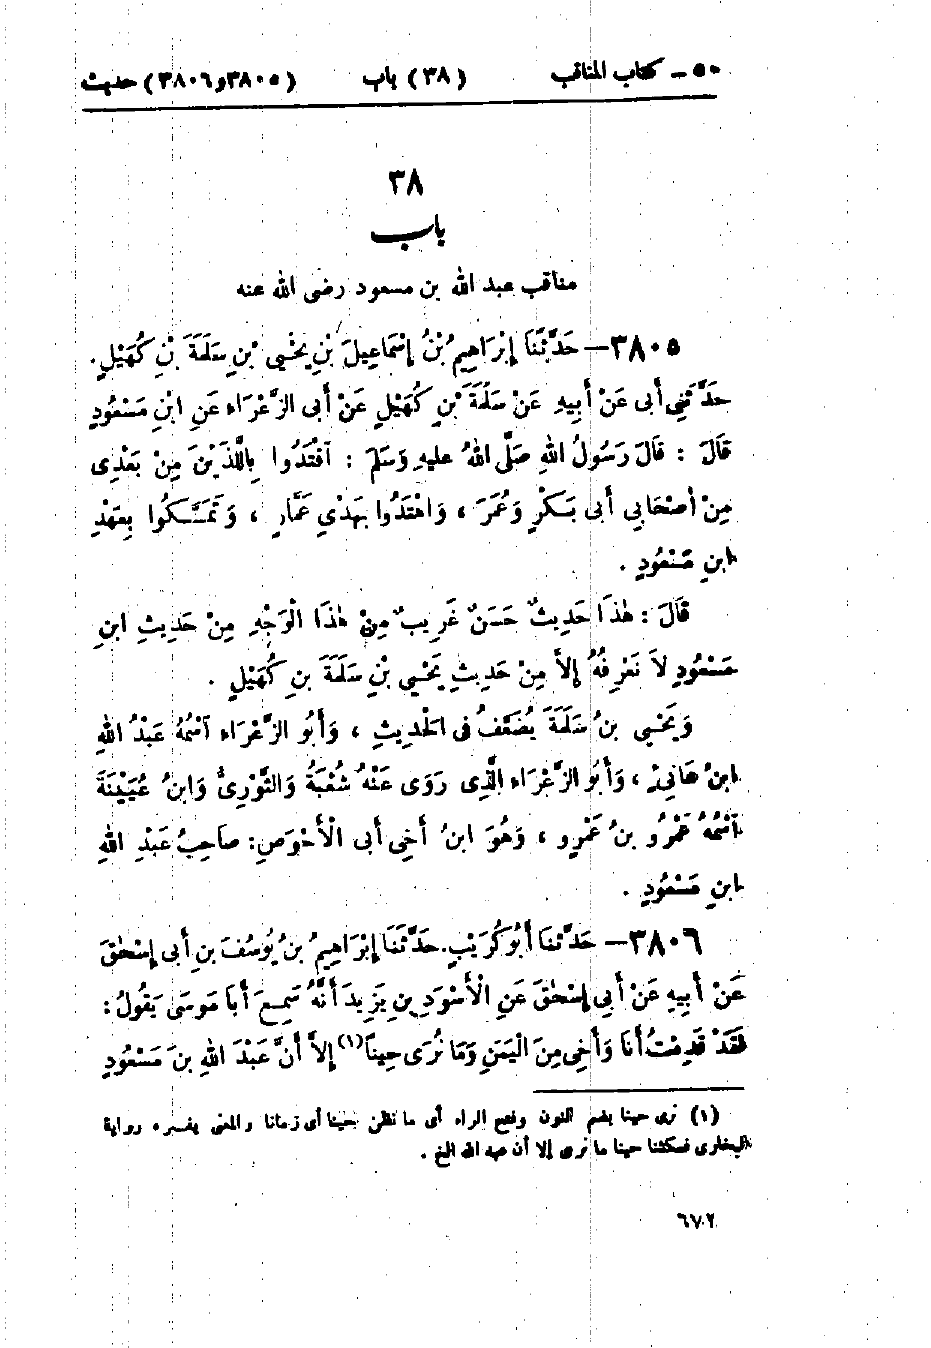 ٥٠ – كتاب المناقب (٣٨) باب (٣٨٠٥ و ٣٨٠٦) حديث
٣٨
باب
مناقب عبد الله بن مسعود رضى الله عنه
٣٨٠٥ – حَدَّثَنَا إِبْرَاهِيمُ بْنُ إِسْمَاعِيلَ بْنِ يَحْيَى بْنِ سَلَمَةَ بْنِ كُهَيْلٍ.
حَدَّثَنِى أَبِى عَنْ أَبِيهِ عَنْ سَلَمَةَ بْنِ كُهَيْلٍ عَنْ أَبِى الزَّعْرَاءِ عَنِ ابْنِ مَسْعُودٍ
قَالَ : قَالَ رَسُولُ اللهِ صَلَّى اللهُ عليهِ وَسَلَمَ : اَقْتَدُوا بِاللَّذَيْنِ مِنْ بَعْدِى
مِنْ أَصْحَابِي أَبِى بَكْرٍ وَعُمَرَ ، وَاهْتَدُوا بِهَدْيِ عَمَّارٍ ، وَتَمَسَّكُوا بِعَهْدِ
ابنِ مَسْعُودٍ .
قَالَ : هٰذَا حَدِيثٌ حَسَنٌ غَرِيبٌ مِنْ هٰذَا الْوَجْهِ مِنْ حَدِيثِ ابنِ
مَسْعُودٍ لاَ نَعْرِفُهُ إِلاَّ مِنْ حَدِيثِ يَحْيَى بْنِ سَلَمَةَ بنِ كُهَيْلٍ .
وَيَحْيَى بنُ سَلَمَةَ يُضَعَّفُ فى الْحَدِيثِ ، وَأَبُو الزَّعْرَاءِ اَسْمُهُ عَبْدُ اللهِ
ابنُ هَانِئ ، وَأَبُو الزَّعْرَاءِ الَّذِى رَوَى عَنْهُ شُعْبَةُ وَالثَّوْرِىُّ وَابنُ عُيَيْنَةَ
اَسْمُهُ عَمْرُو بنُ عَمْرٍو ، وَهُوَ ابنُ أَخِى أَبِى الْأَحْوَصِ: صَاحِبُ عَبْدِ اللهِ
ابنِ مَسْعُودٍ .
٣٨٠٦ – حَدَّثَنَا أَبُو كُرَيْبٍ. حَدَّثَنَا إِبْرَاهِيمُ بنُ يُوسُفَ بنِ أَبِى إِسْحٰقَ
عَنْ أَبِيهِ عَنْ أَبِي إِسْحٰقَ عَنِ الْأَسْوَدِ بنِ يَزِيدَ أَنَّهُ سَمِعَ أَبَا مُوسَى يَقُولُ :
لَقَدْ قَدِمْتُ أَنَا وَأَخِى مِنَ الْيَمَنِ وَمَا نُرَى حِينًا (١) إِلاَّ أَنَّ عَبْدَ اللهِ بنَ مَسْعُودٍ
(١) نرى حينا بضم النون وفتح الراء أى ما نظن حينا أى زمانا والمعنى يفسره رواية
البخارى فمكثنا حينا ما نرى إلا أن عبد الله الخ .
٦٧٢